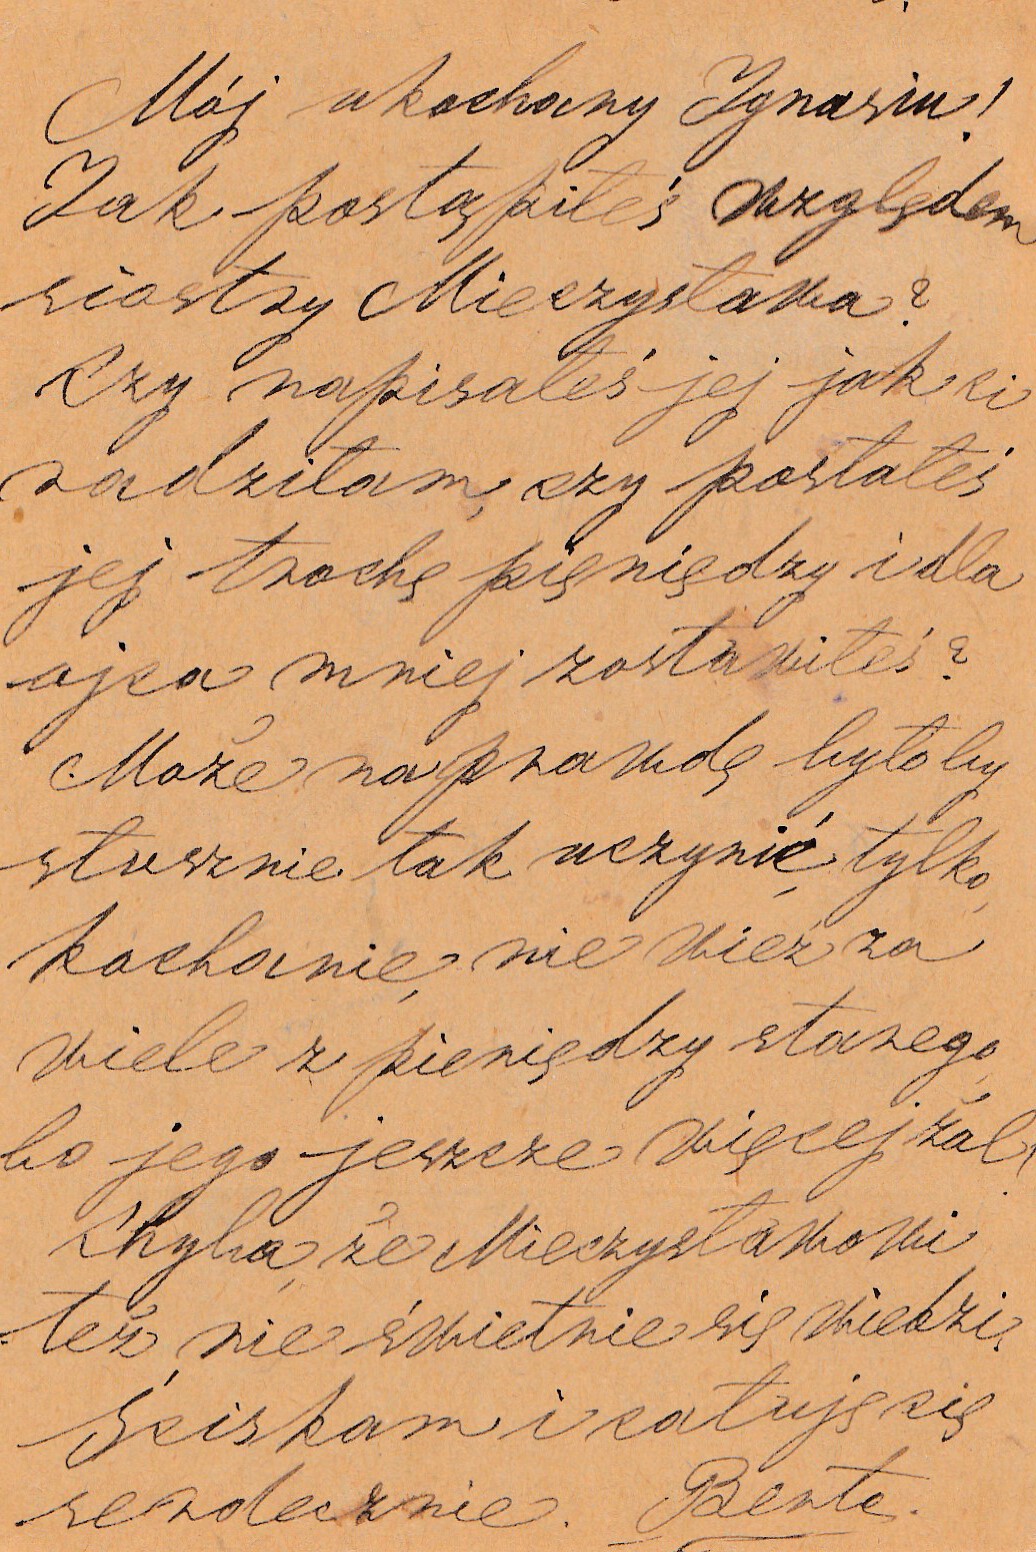 Mój ukochany Ignasiu!
Jak postąpiłeś względem
siostry Mieczysława?
Czy napisałeś jej jak ci
radziłam, czy posłałeś
jej trochę pięniędzy i dla
ojca mniej zostawiłeś?
Może naprawdę byłoby
słusznie tak uczynić, tylko,
kochanie, nie wieź za
wiele z pieniędzy starego,
bo jego jeszcze więcej żal!
Chyba, że Mieczysławowi
też nie świetnie się wiedzie,
Ściskam i całuję cię
serdecznie.